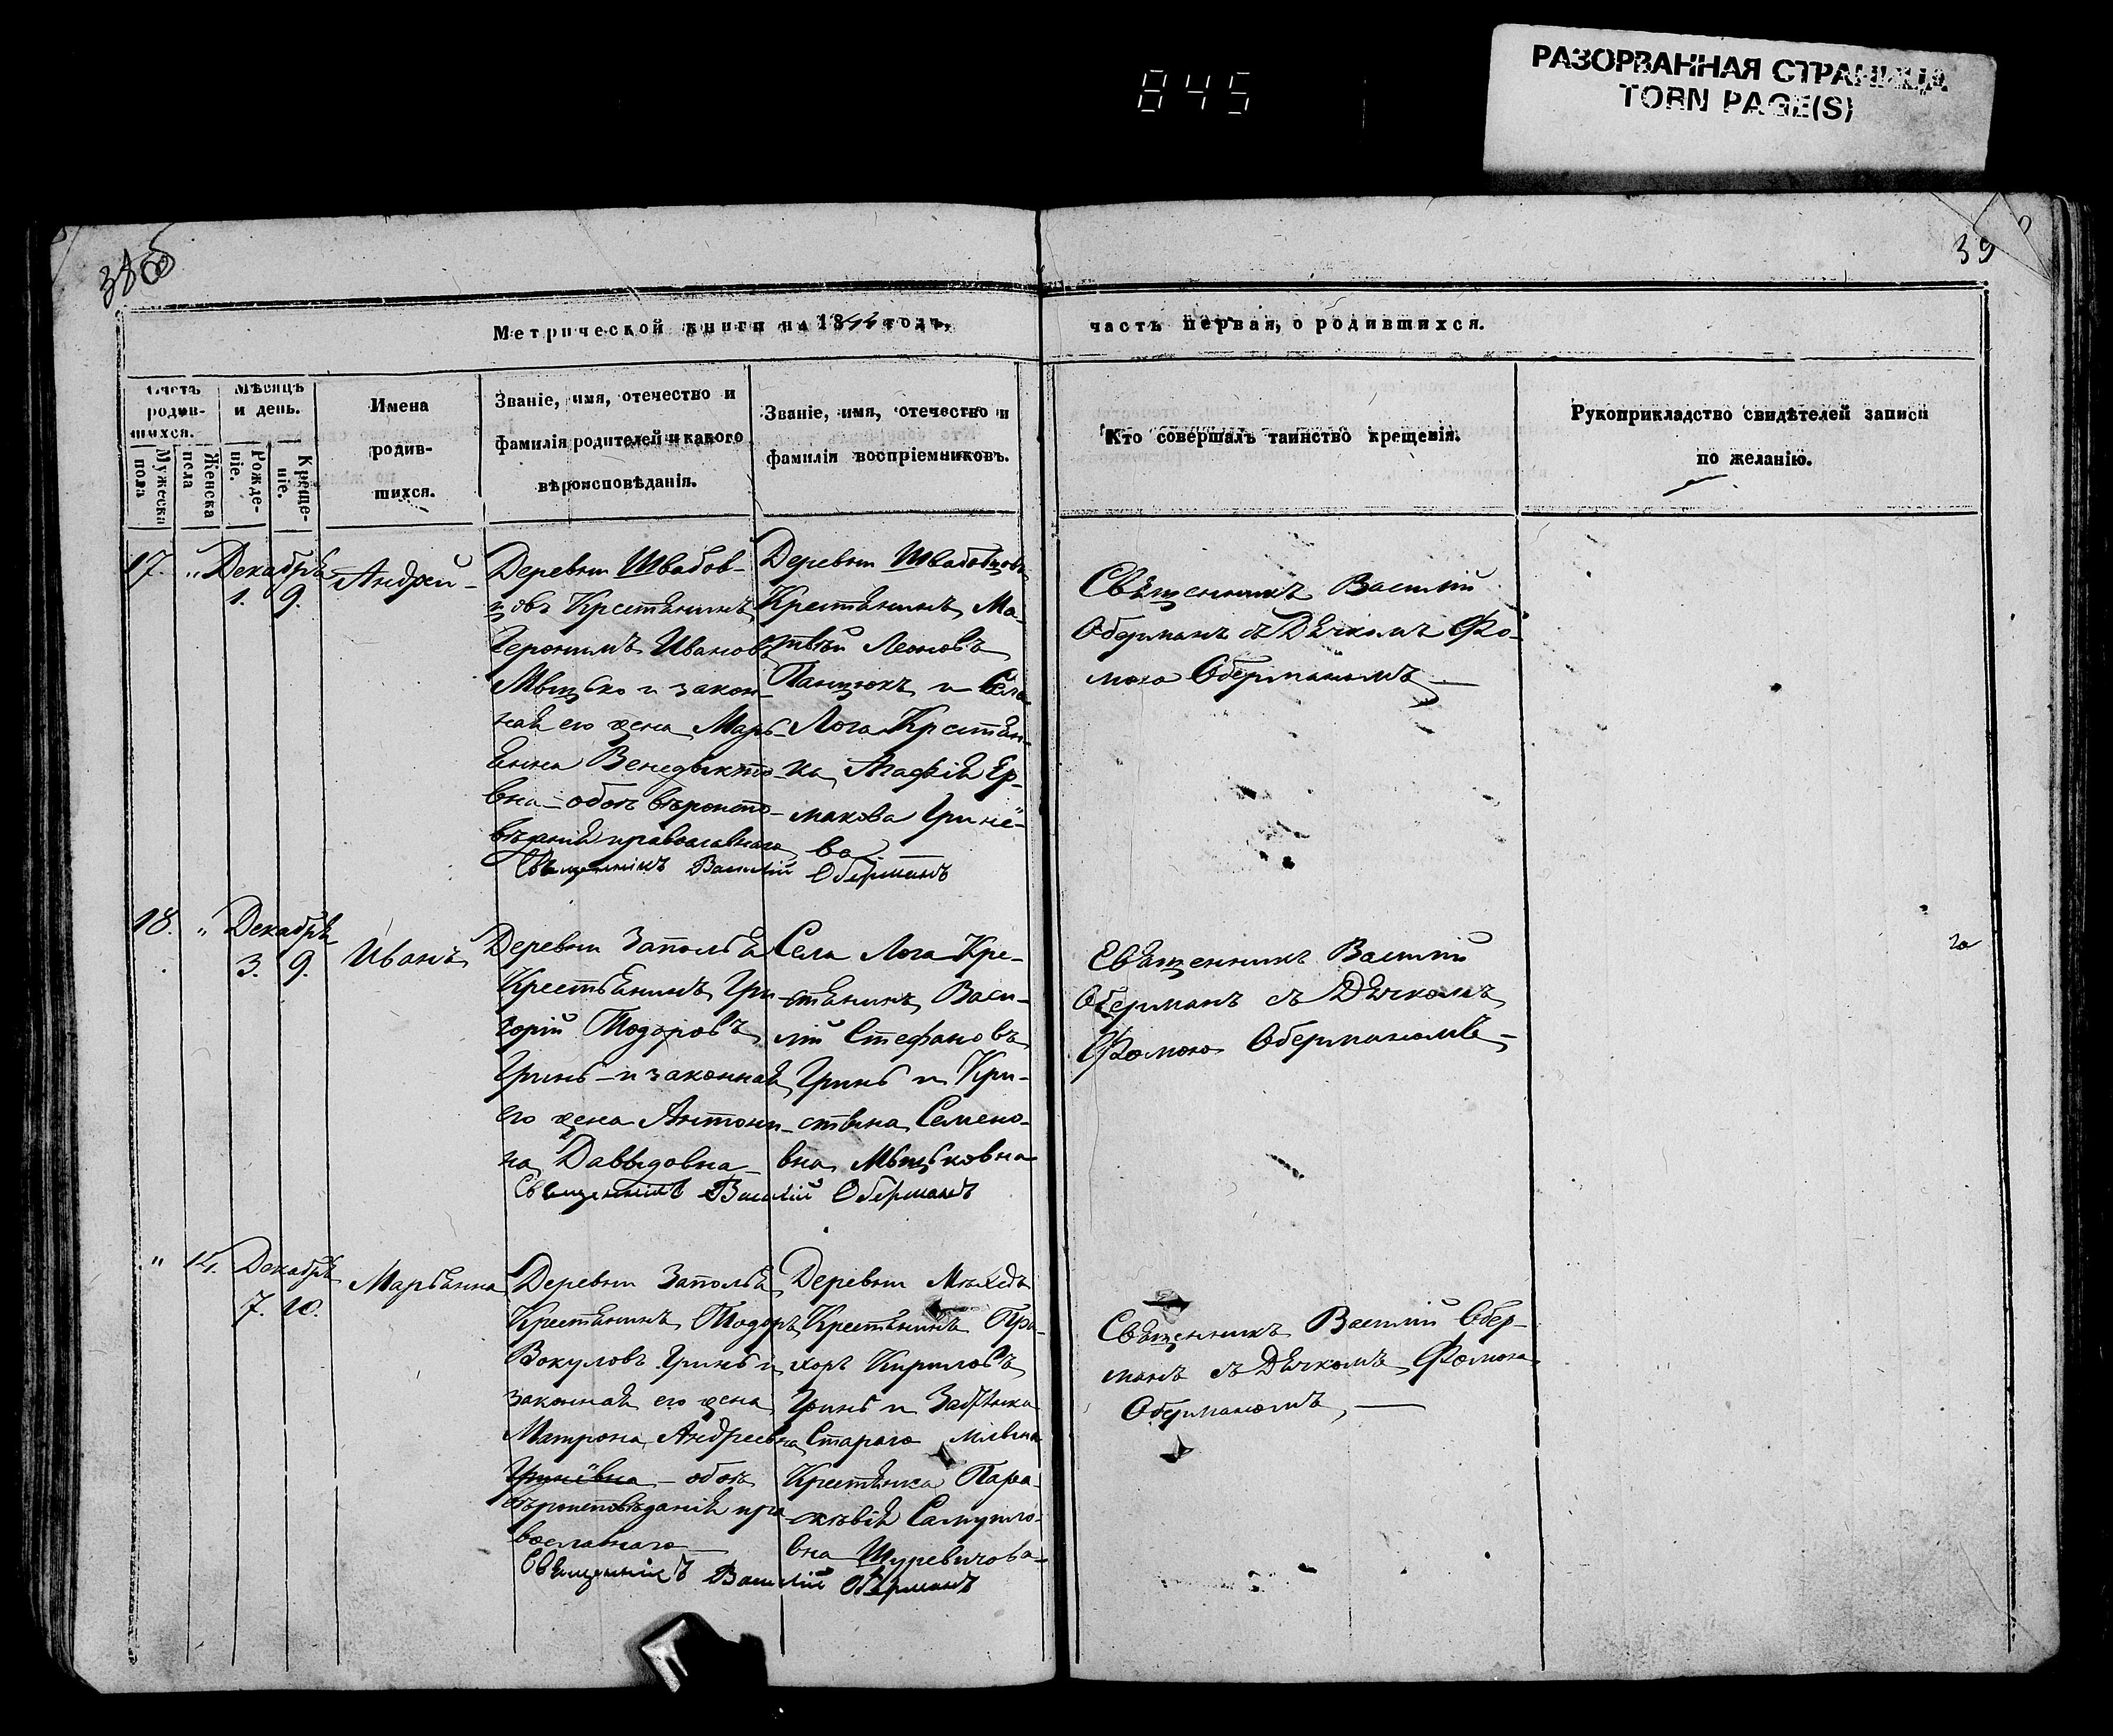 845
РАЗОРВАННАЯ СТРАНИЦА
TORN PAGE(S)
39
Метрической книги на 1844 годъ,
часть первая, о родившихся.
Счетъ родив-шихся.
Мужеска пола
Женска пола
Мѣсяцъ и день.
Рожде-ніе.
Креще-ніе.
Имена
родив-
шихся.
Званіе, имя, отечество и
фамилія родителей и какого
вѣроисповѣданія.
Званіе, имя, отечество и
фамилія воспріемниковъ.
Кто совершалъ таинство крещенія.
Рукоприкладство свидѣтелей записи
по желанію.
17. " Декабря
1. 9.
Андрей
Деревни Швабов-
цовъ Крестянинъ
Іеронимъ Ивановъ
и закон-
ная его жена Марь-
янна Венедыкто-
вна – обоихъ вѣроиспо-
вѣданія православнаго
Деревни
Крестянинъ Ма-
твѣй Леоновъ
Панцюкъ и Села
Лога Крестян-
ка Агафія Ер-
макова Гринё-
ва
Священникъ Василій Оберманъ
Священникъ Василій
Оберманъ съ Дьячкомъ Фо-
мою Оберманомъ –
18. " Декабря
3. 9.
Иванъ
Деревни Заполья
Крестьянинъ Гри-
горій Тодоровъ
Гринь – и законная
его жена Антони-
на Давыдовна –
Села Лога Кре-
стянинъ Васи-
лій Стефановъ
Гринь и Кри-
стына Семено-
вна
Священникъ Василій Оберманъ
Священникъ Василій
Оберманъ съ Дьячкомъ
Фомою Оберманомъ –
" 14. Декабря
7. 10.
Марьянна
Деревни Заполья
Крестянинъ Тодоръ
Вокуловъ Гринь и
законная его жена
Матрона Андреевна
Гринёвна – обоихъ
вѣроисповѣданія пра-
вославнаго
Деревни
Крестянинъ Про-
хоръ Кириловъ
Гринь и
Стараго
Крестянка Пара-
скевія Самуило-
вна Шуревичова
Священникъ Василій Оберманъ
Священникъ Василій Обер-
манъ съ Дьячкомъ Фомою
Оберманомъ, –